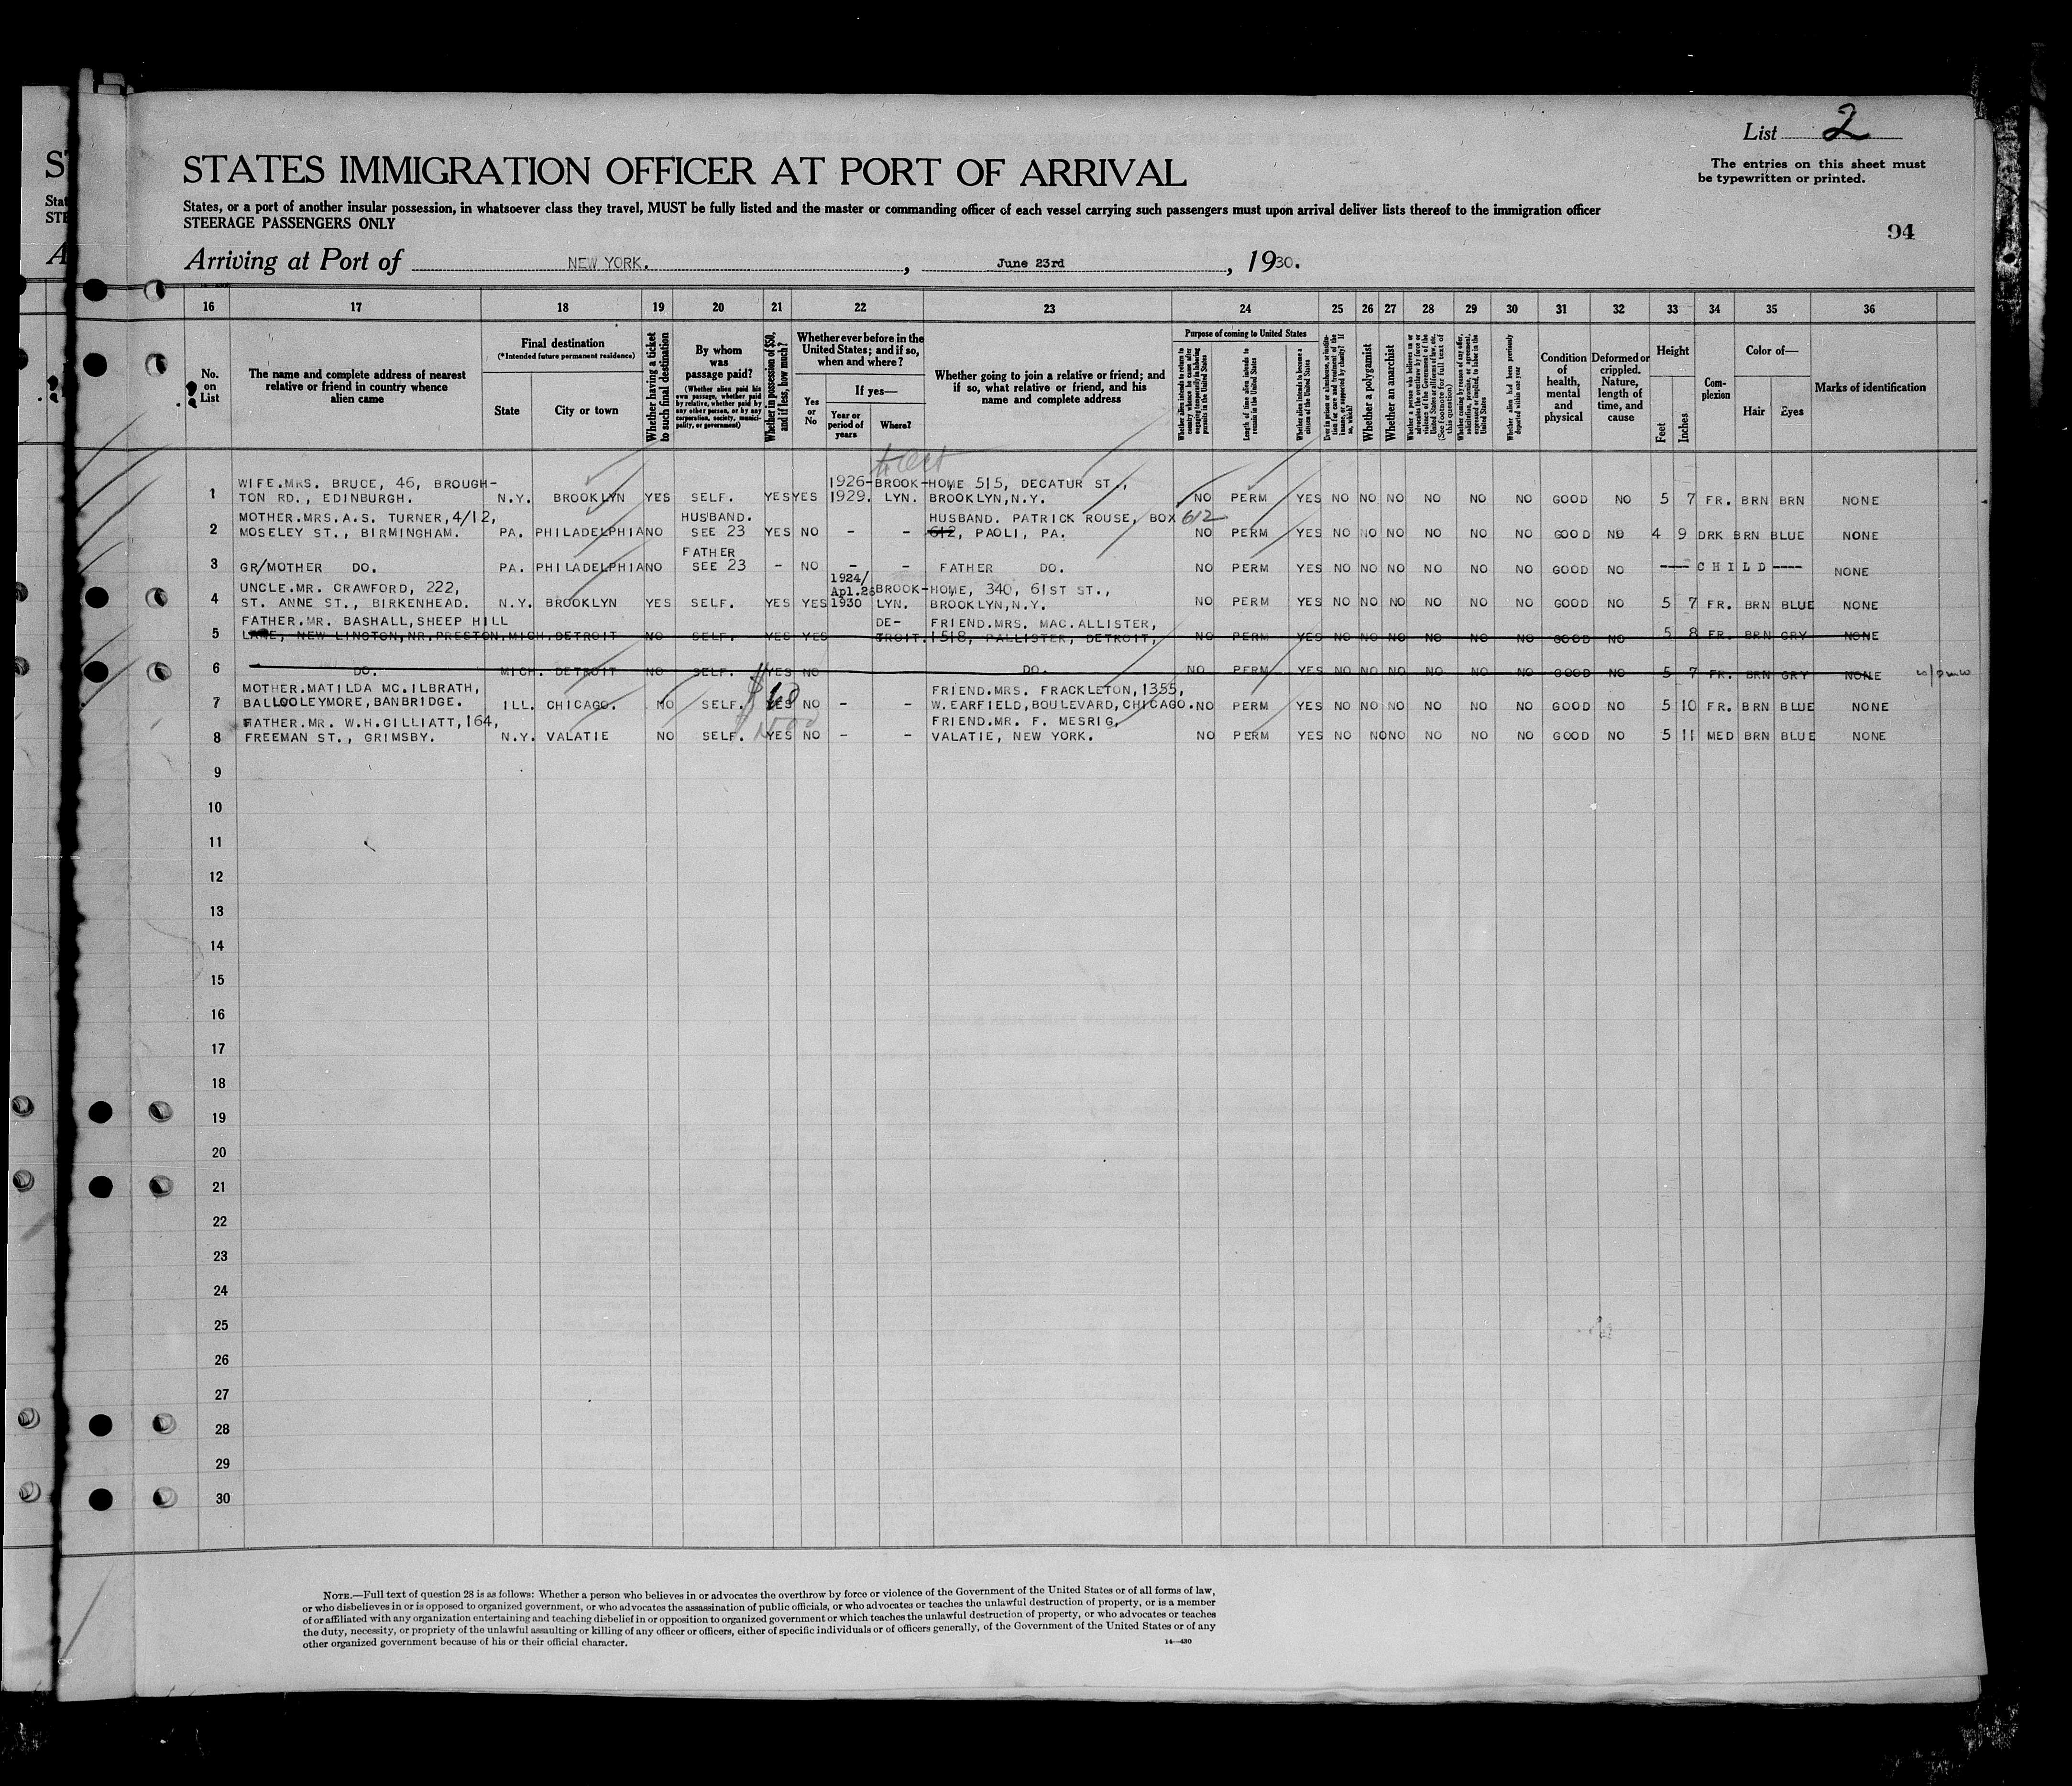 List 2
The entries on this sheet must
be typewritten or printed.
STATES IMMIGRATION OFFICER AT PORT OF ARRIVAL
States, or a port of another insular possession, in whatsoever class they travel, MUST be fully listed and the master or commanding officer of each vessel carrying such passengers must upon arrival deliver lists thereof to the immigration officer
STEERAGE PASSENGERS ONLY
94
Arriving at Port of NEW YORK. , June 23rd , 1930.
16 17 18 19 20 21 22 23 24 25 26 27 28 29 30 31 32 33 34 35 36
No. on List
The name and complete address of nearest
relative or friend in country whence
alien came
Final destination
(*Intended future permanent residence)
State
City or town
Whether having a ticket
to such final destination
By whom
was
passage paid?
(Whether alien paid his
own passage, whether paid
by relative, whether paid by
any other person, or by any
corporation, society, munici-
pality, or government)
Whether in possession of $50,
and if less, how much?
Whether ever before in the
United States; and if so,
when and where?
Yes
or
No
If yes—
Year or
period of
years
Where?
Whether going to join a relative or friend; and
if so, what relative or friend, and his
name and complete address
Purpose of coming to United States
Whether alien intends to return to
country whence he came after
engaging temporarily in laboring
pursuits in the United States
Length of time alien intends to
remain in the United States
Whether alien intends to become a
citizen of the United States
Ever in prison or almshouse, or institu-
tion for care and treatment of the
insane, or supported by charity? If
so, which?
Whether a polygamist
Whether an anarchist
Whether a person who believes in or
advocates the overthrow by force or
violence of the Government of the
United States or all forms of law, etc.
(See footnote for full text of
this question)
Whether coming by reason of any offer,
solicitation, promise, or agreement,
expressed or implied, to labor in the
United States
Whether alien had been previously
deported within one year
Condition
of
health,
mental
and
physical
Deformed or
crippled.
Nature,
length of
time, and
cause
Height
Feet
Inches
Com-
plexion
Color of—
Hair
Eyes
Marks of identification
WIFE.MRS. BRUCE, 46, BROUGH- 1926- BROOK- HOME 515, DECATUR ST.,
1 TON RD., EDINBURGH. N.Y. BROOKLYN YES SELF. YES YES 1929. LYN. BROOKLYN,N.Y. NO PERM YES NO NO NO NO NO NO GOOD NO 5 7 FR. BRN BRN NONE
MOTHER.MRS.A.S. TURNER,4/12, HUSBAND. HUSBAND. PATRICK ROUSE, BOX 612
2 MOSELEY ST., BIRMINGHAM. PA. PHILADELPHIA NO SEE 23 YES NO – – 612, PAOLI, PA. NO PERM YES NO NO NO NO NO NO GOOD NO 4 9 DRK BRN BLUE NONE
FATHER
3 GR/MOTHER DO. PA. PHILADELPHIA NO SEE 23 – NO – – FATHER DO. NO PERM YES NO NO NO NO NO NO GOOD NO ---- CHILD ---- NONE
UNCLE.MR. CRAWFORD, 222, 1924/ Apl.26 BROOK- HOME, 340, 61ST ST.,
4 ST. ANNE ST., BIRKENHEAD. N.Y. BROOKLYN YES SELF. YES YES 1930 LYN. BROOKLYN,N.Y. NO PERM YES NO NO NO NO NO NO GOOD NO 5 7 FR. BRN BLUE NONE
FATHER.MR. BASHALL,SHEEP HILL DE- FRIEND.MRS. MAC.ALLISTER,
5 LANE, NEW LINGTON,NR.PRESTON. MICH. DETROIT NO SELF. YES YES TROIT. 1518, PALLISTER, DETROIT, NO PERM YES NO NO NO NO NO NO GOOD NO 5 8 FR. BRN GRY NONE
6 DO. MICH. DETROIT NO SELF. YES NO DO. NO PERM YES NO NO NO NO NO NO GOOD NO 5 7 FR. BRN GRY NONE
MOTHER.MATILDA MC.ILBRATH, FRIEND.MRS. FRACKLETON,1355,
7 BALLOOLEYMORE,BANBRIDGE. ILL. CHICAGO. NO SELF. YES NO – – W.EARFIELD,BOULEVARD,CHICAGO. NO PERM YES NO NO NO NO NO NO GOOD NO 5 10 FR. BRN BLUE NONE
FATHER.MR. W.H.GILLIATT,164, FRIEND.MR. F. MESRIG,
8 FREEMAN ST., GRIMSBY. N.Y. VALATIE NO SELF. YES NO – – VALATIE, NEW YORK. NO PERM YES NO NO NO NO NO NO GOOD NO 5 11 MED BRN BLUE NONE
9
10
11
12
13
14
15
16
17
18
19
20
21
22
23
24
25
26
27
28
29
30
NOTE.—Full text of question 28 is as follows: Whether a person who believes in or advocates the overthrow by force or violence of the Government of the United States or of all forms of law,
or who disbelieves in or is opposed to organized government, or who advocates the assassination of public officials, or who advocates or teaches the unlawful destruction of property, or is a member
of or affiliated with any organization entertaining and teaching disbelief in or opposition to organized government or which teaches the unlawful destruction of property, or who advocates or teaches
the duty, necessity, or propriety of the unlawful assaulting or killing of any officer or officers, either of specific individuals or of officers generally, of the Government of the United States or of any
other organized government because of his or their official character.
14—430